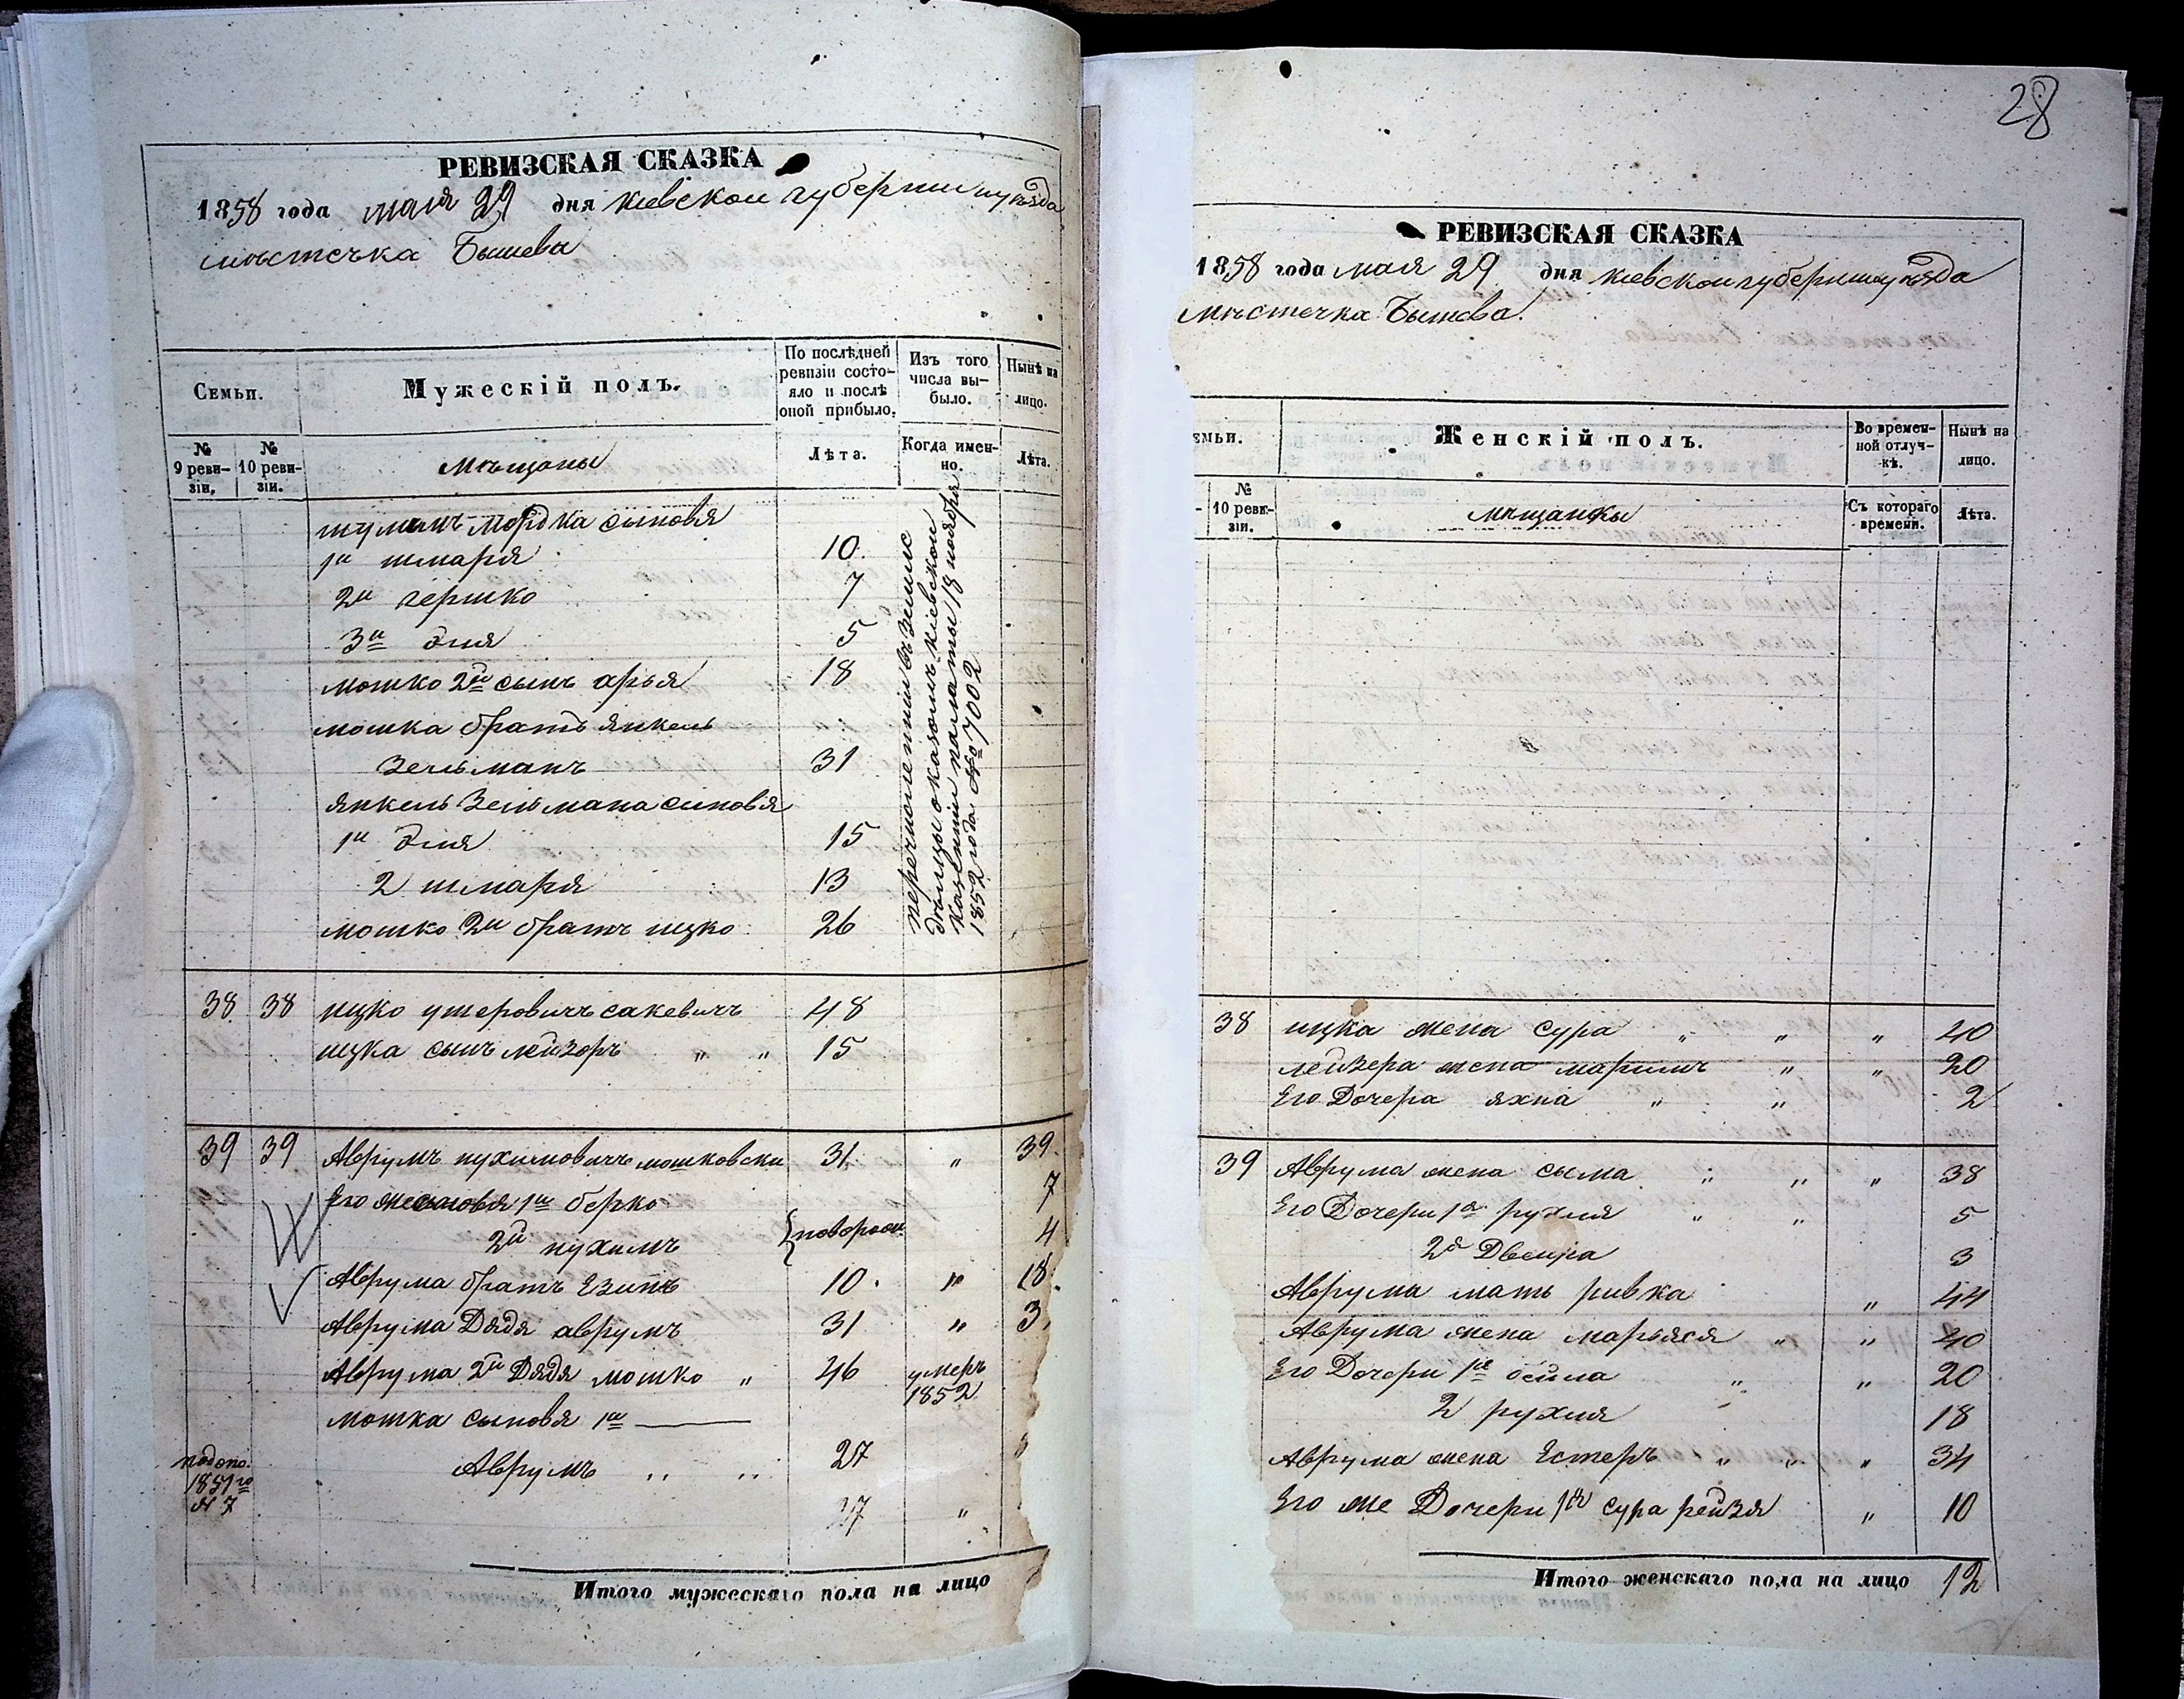 РЕВИЗСКАЯ СКАЗКА
1858 года мая 29 дня киевской губерни и уѣзда
мѣстечка Бышева
Семьи.
Мужескій полъ.
По послѣдней ревизіи состояло и послѣ оной прибыло.
Изъ того числа выбыло.
Нынѣ на лицо.
№ 9 ревизіи.
№ 10 ревизіи.
мѣщаны
Лѣта.
Когда именно.
Лѣта.
мордка сыновя
1й шмаря 10
2й гершко 7
3й 5
мошко 2й сынъ арья 18
мошка братъ янкель
Зельманъ 31
янкель Зельмана синовя
1й 15
2 шмаря 13
мошко 2й братъ ицко 26
казенной палаты 18 ноября
1852 года № 7002
38 38 ицко умеровичъ сакевичъ 48
ицка сынъ лейзоръ " " 15
39 39 Аврумъ нухимовичъ мошковски 31 " 39
Его же сыновя 1й берко 7
2й нухимъ новорож. 4
Аврума братъ 10 " 18
Аврума Дядя аврумъ 31 " 3
Аврума 2й Дядя мошко " 46 умеръ 1852
мошка сыновя 1й
Аврумъ 27 "
1851го
№ 7
27 "
Итого мужескаго пола на лицо
28
РЕВИЗСКАЯ СКАЗКА
1858 года мая 29 дня киевской губерни и уѣзда
мѣстечка Бышева.
емьи.
Женскій полъ.
Во временной отлучкѣ.
Нынѣ на лицо.
№ 10 ревизіи.
мѣщанкы
Съ котораго времени.
Лѣта.
38 ицка жена сура " " " 40
лейзера жена маримъ " " 20
Его Дочера яхна " " 2
39 Аврума жена сыма " " " 38
Его Дочери 1я рухля " " 5
2я Двейра 3
Аврума мать ривка " 44
Аврума жена марьяся " " 40
Его Дочери 1я бейла " " 20
2 рухля " 18
Аврума жена Естеръ " " " 34
Его же Дочери 1я сура рейзя " 10
Итого женскаго пола на лицо 12